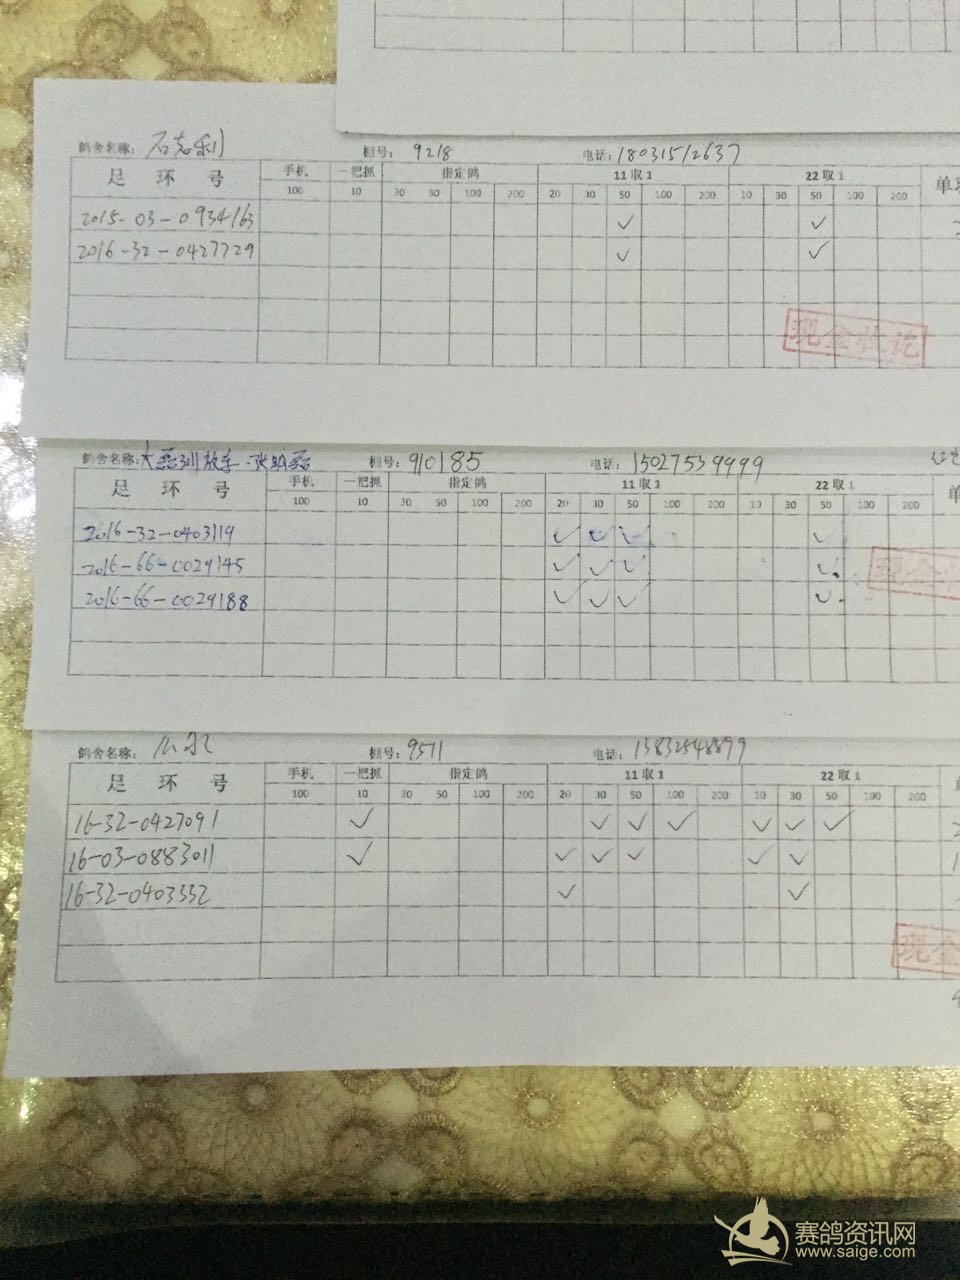 鸽舍名称: 石志利 棚号: 9218 电话: 18031512637
足 环 号 手机 一把抓 指定鸽 11取1 22取1
100 10 30 50 100 200 20 30 50 100 200 10 30 50 100 200
2015-03-0934163 ✓ ✓
2016-32-0427729 ✓ ✓
现金收讫
鸽舍名称: 大磊训放车·张明磊 棚号: 910185 电话: 15027539999
足 环 号 手机 一把抓 指定鸽 11取1 22取1
100 10 30 50 100 200 20 30 50 100 200 10 30 50 100 200
2016-32-0403119 ✓ ✓ ✓ ✓
2016-66-0029145 ✓ ✓ ✓ ✓
2016-66-0029188 ✓ ✓ ✓ ✓
现金
鸽舍名称: 棚号: 9571 电话: 13832548899
足 环 号 手机 一把抓 指定鸽 11取1 22取1
100 10 30 50 100 200 20 30 50 100 200 10 30 50 100 200
16-32-0427091 ✓ ✓ ✓ ✓ ✓ ✓ ✓
16-03-0883011 ✓ ✓ ✓ ✓ ✓ ✓
16-32-0403332 ✓ ✓
现金
赛鸽资讯网
www.saige.com